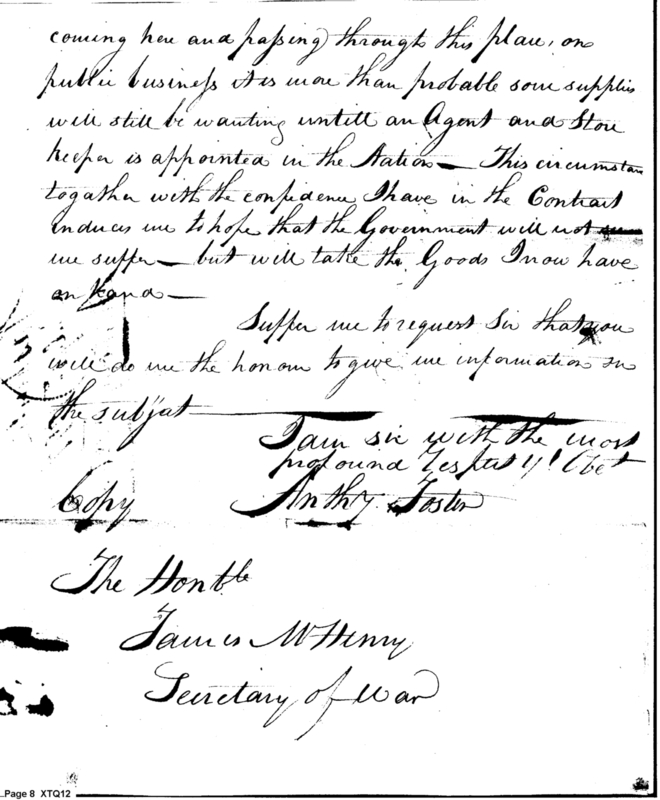 coming here and passing through this place, on
public business it is more than probable some supplies
will still be wanting untill an Agent and Store
keeper is appointed in the Nation — This circumstan
togather with the confidence I have in the Contract
induces me to hope that the Government will not
me suffer — but will take the Goods I now have
on hand —
Suffer me to request Sir that you
will do me the honour to give me information on
the subject
I am sir with the most
profound respect yr Obet
Copy Anthy Foster
The Honble
James McHenry
Secretary of War
Page 8 XTQ12